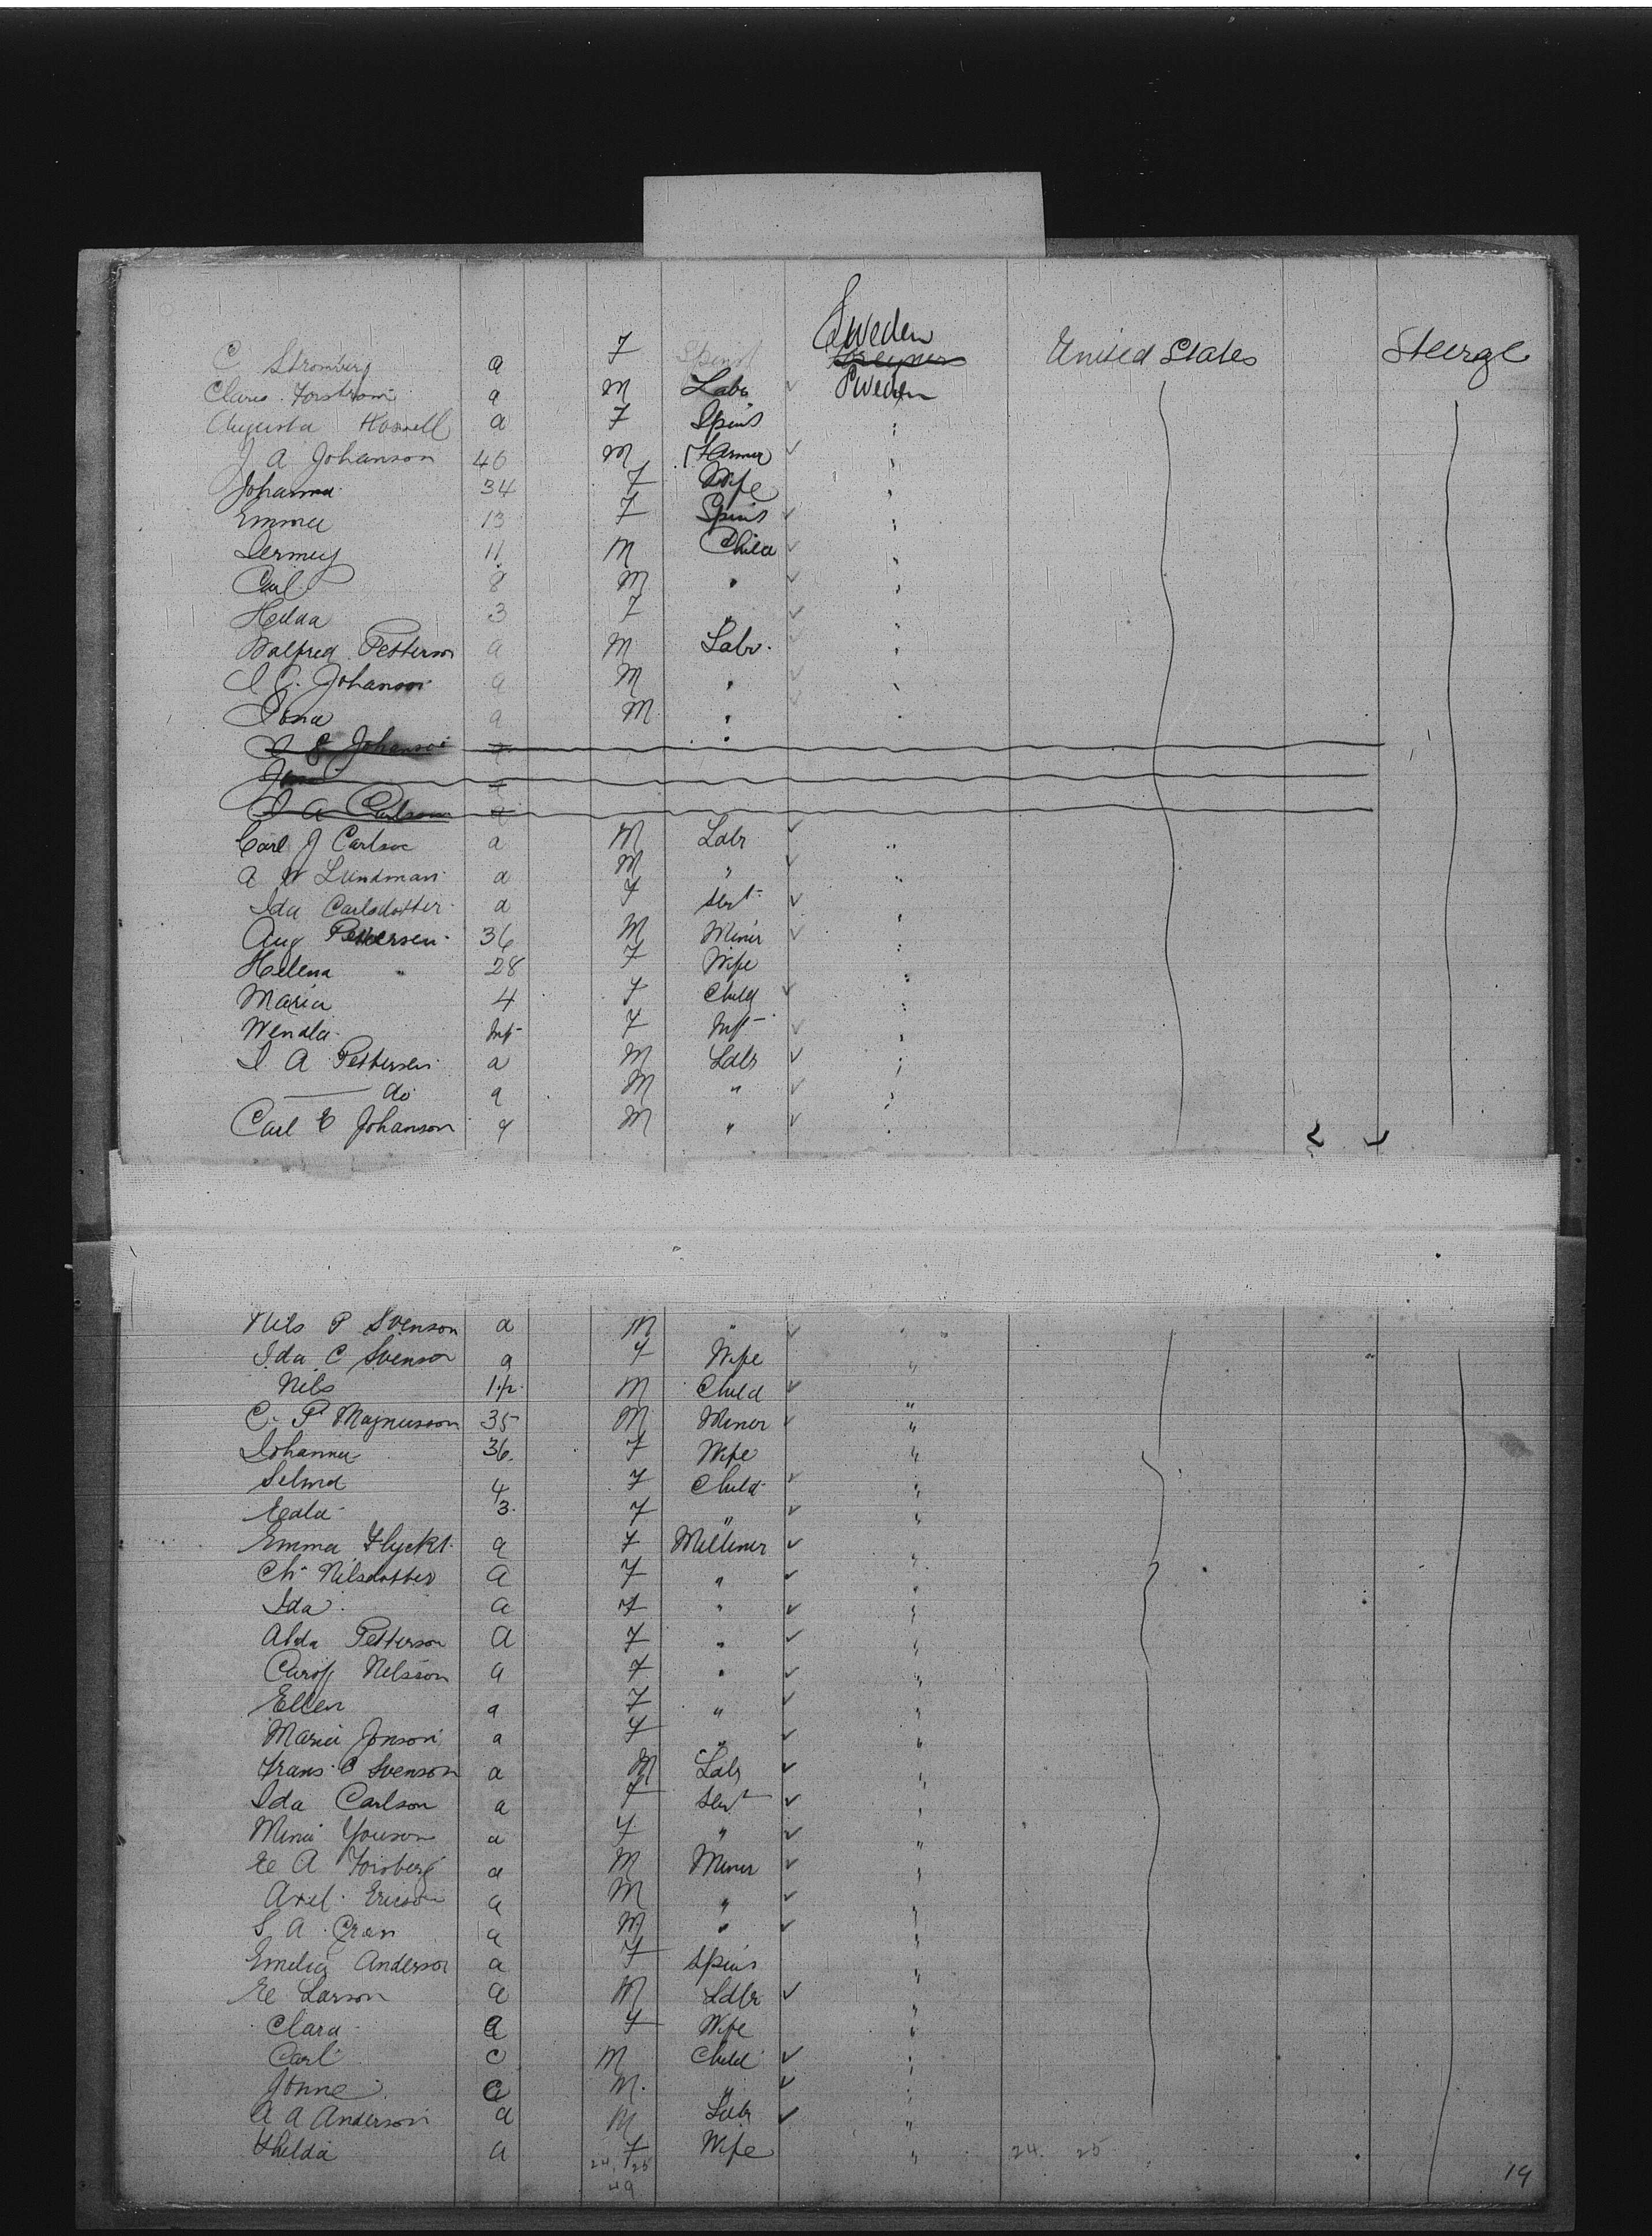 Sweden
C Stromberg a F Spinst United States Steerge
Clares Forstrom a M Labr Sweden
Augusta a F Spins "
J A Johanson 40 M Farmer "
Johanna 34 F Wife "
Emma 13 F Spins "
11 M Child "
Carl 8 M " "
Hilda 3 F " "
Walfred Petterson a M Labr. "
I C. Johanson a M " "
a M " "
I E Johanson a "
a
I A Carlson a
Carl J Carlson a M Labr "
A W Lundman a M " "
Ida Carlsdotter a F Sert "
Aug Pettersen 36 M Miner "
Helena " 28 F Wife "
Maria 4 F Child "
Wendla Inft F Inft "
I A Pettersen a M Labr "
do a M " "
Carl E Johanson a M " "
Nils P Svenson a M " "
Ida C Svenson a F Wife "
Nils M Child "
C. P Magnusson 35 M Miner "
Johanna 36. F Wife "
Selma 4 F Child "
3 F " "
Emma Flyckt a F Milliner "
Ch Nilsdotter a F " "
Ida a F " "
Alda Petterson a F " "
Nelsson a F " "
Ellen a F " "
Maria Jonson a F " "
Frans C Svenson a M Labr "
Ida Carlson a F Sert "
Mina a F " "
A Forsberg a M Miner "
Axel Ericson a M " "
S A Cran a M " "
Emilia Anderson a F Spins "
Larson a M Labr "
Clara a F Wife "
Carl C M Child "
Jonne C M " "
A A Anderson a M Labr "
Thilda a F Wife " 24 25
24 25
49
19